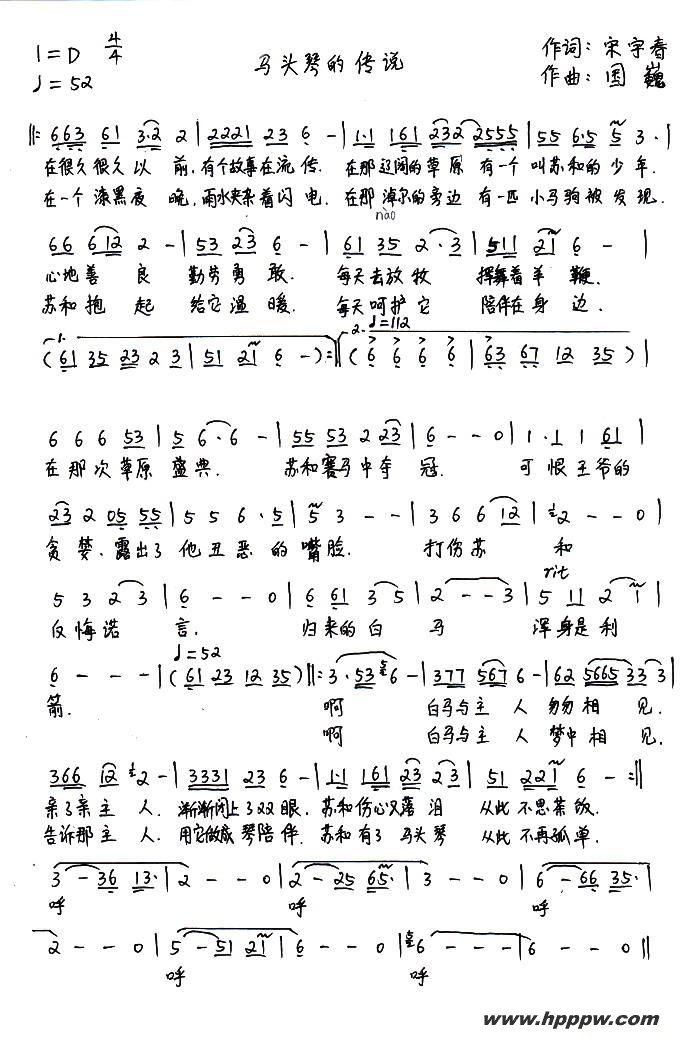 1=D 4/4 马头琴的传说 作词：宋宇春
♩=52 作曲：国巍
‖: 663 61 3·2 2 | 2221 23 6 - | 1·1 161 232 2555 | 55 6·5 5 3 · |
在很久很久以 前,有个故事在流传. 在那辽阔的草原 有一个 叫苏和的少年.
在一个漆黑夜 晚,雨水夹杂着闪电. 在那淖尔的旁边 有一匹小马驹被发现.
nào
66 612 2 - | 53 23 6 - | 61 35 2·3 | 511 21 6 - |
心地善 良 勤劳勇敢. 每天去放牧 挥舞着羊鞭.
苏和抱 起 给它温暖. 每天呵护它 陪伴在身边.
1. 2. ♩=112
(61 35 23 2 3 | 51 21 6 -) :‖ (6 6 6 6 | 63 67 12 35) |
6 6 6 53 | 5 6·6 - | 55 53 2 23 | 6 - - 0 | 1·1 1 61 |
在那次草原 盛典. 苏和赛马中夺冠. 可恨王爷的
23 2 05 55 | 5 5 6·5 | 5 3 - - | 3 6 6 12 | 2 - - 0 |
贪婪,露出了他丑恶的嘴脸. 打伤苏 和
rit
5 3 2 3 | 6 - - 0 | 6 61 3 5 | 2 - - 3 | 5 11 2 1 |
反悔诺 言. 归来的白 马 浑身是利
♩=52
6 - - - | (61 23 12 35) ‖: 3·53 6 - | 377 567 6 - | 62 5665 33 3 |
箭. 啊 白马与主 人 匆匆相 见.
啊 白马与主 人 梦中相 见.
366 12 2 - | 3331 23 6 - | 1·1 161 23 23 | 51 221 6 - :‖
亲了亲主 人. 渐渐闭上了双眼. 苏和伤心又落泪 从此不思茶饭.
告诉那主 人. 用它做成琴陪伴. 苏和有了马头琴 从此不再孤单.
3 - 36 13· | 2 - - 0 | 2 - 25 65· | 3 - - 0 | 6 - 66 35· |
呼 呼 呼
2 - - 0 | 5 - 51 21 | 6 - - 0 | 6 - - - | 6 - - 0 ‖
呼 呼
www.hpppw.com